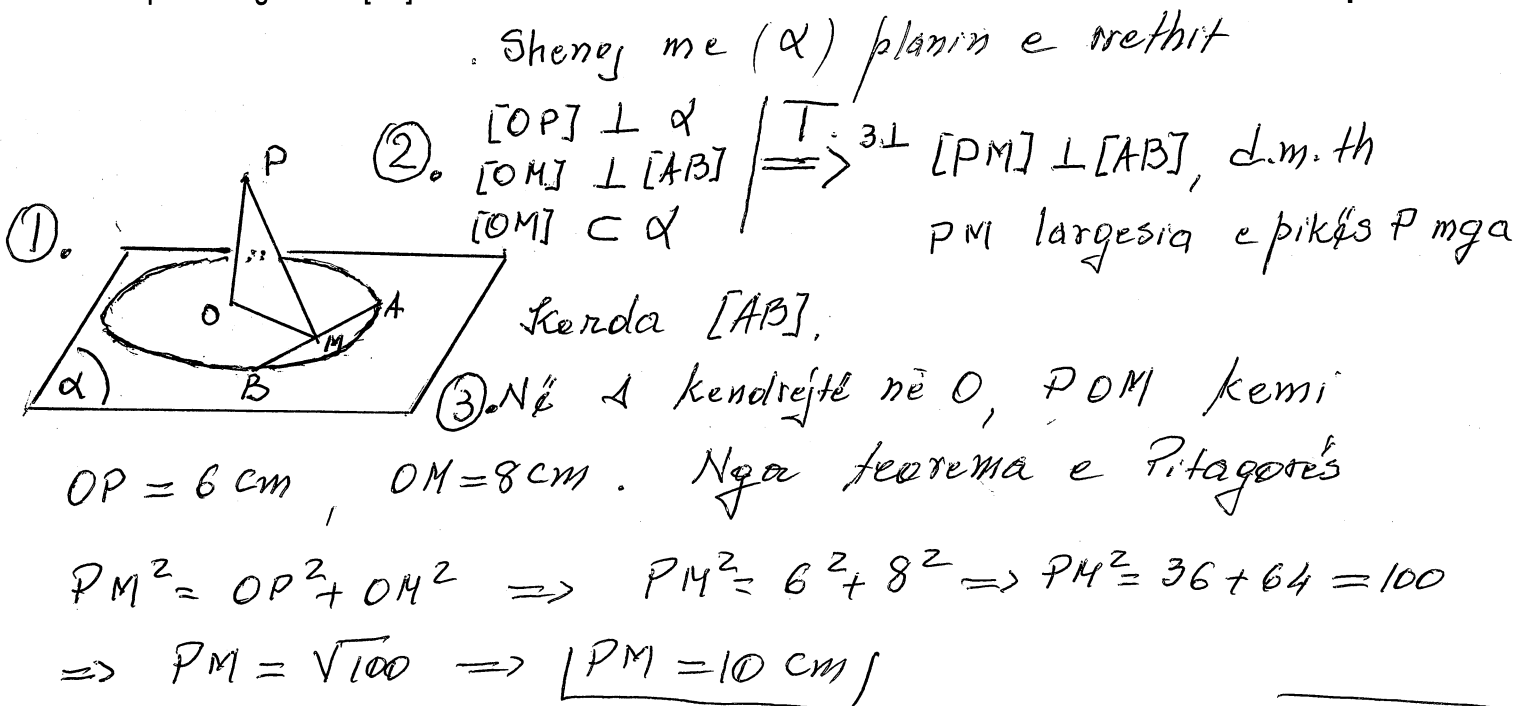 . Shenoj me (α) planin e rrethit
②. [OP] ⊥ α
[OM] ⊥ [AB]
[OM] ⊂ α
T. 3⊥
=> [PM] ⊥ [AB], d.m.th
PM largesia e pikës P nga
Korda [AB].
①.
P
O
A
M
B
α
③. Në Δ kendrejtë në O, POM kemi
OP = 6 cm, OM = 8 cm. Nga teorema e Pitagorës
PM² = OP² + OM² => PM² = 6² + 8² => PM² = 36 + 64 = 100
=> PM = √100 => PM = 10 cm